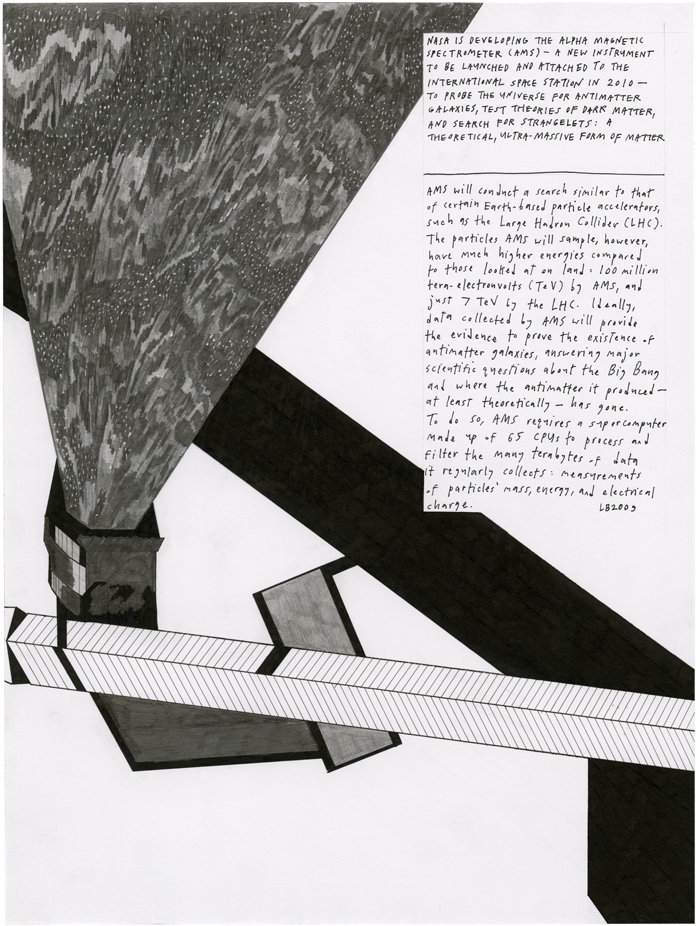 NASA IS DEVELOPING THE ALPHA MAGNETIC
SPECTROMETER (AMS) — A NEW INSTRUMENT
TO BE LAUNCHED AND ATTACHED TO THE
INTERNATIONAL SPACE STATION IN 2010 —
TO PROBE THE UNIVERSE FOR ANTIMATTER
GALAXIES, TEST THEORIES OF DARK MATTER,
AND SEARCH FOR STRANGELETS: A
THEORETICAL, ULTRA-MASSIVE FORM OF MATTER
AMS will conduct a search similar to that
of certain Earth-based particle accelerators,
such as the Large Hadron Collider (LHC).
The particles AMS will sample, however,
have much higher energies compared
to those looked at on land: 100 million
tera-electronvolts (TeV) by AMS, and
just 7 TeV by the LHC. Ideally,
data collected by AMS will provide
the evidence to prove the existence of
antimatter galaxies, answering major
scientific questions about the Big Bang
and where the antimatter it produced —
at least theoretically — has gone.
To do so, AMS requires a supercomputer
made up of 65 CPUs to process and
filter the many terabytes of data
it regularly collects: measurements
of particles' mass, energy, and electrical
charge. LB2009